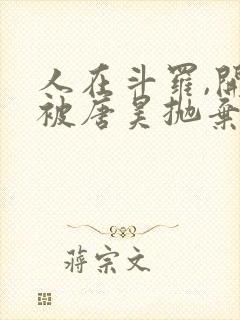 人在斗罗,開
被唐昊抛棄
蔣宗文